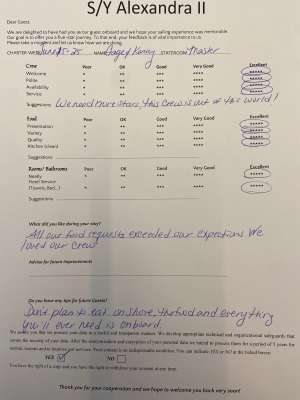 S/Y Alexandra II
Dear Guest,
We are delighted to have had you as our guest onboard and we hope your sailing experience was memorable.
Our goal is to offer you a five-star journey. To that end, your feedback is of vital importance to us.
Please take a moment and let us know how we are doing.
CHARTER WEEK June 15-25 NAME Stagey Kenny STATEROOM Master
Crew Poor OK Good Very Good Excellent
Welcome * ** *** **** *****
Polite * ** *** **** *****
Availability * ** *** **** *****
Service * ** *** **** *****
Suggestions We need more stars, this crew is out of this world!
Food Poor OK Good Very Good Excellent
Presentation * ** *** **** *****
Variety * ** *** **** *****
Quality * ** *** **** *****
Kitchen (clean) * ** *** **** *****
Suggestions
Rooms/ Bathrooms Poor OK Good Very Good Excellent
Neatly * ** *** **** *****
Hotel Service
(Towels, Bed...) * ** *** **** *****
Suggestions
What did you like during your stay?
All our food requests exceeded our expectations We
loved our Crew
Advise for future improvements
Do you have any tips for future Guests?
Don't plan to eat on shore, the food and everything
you'll ever need is onboard.
We assure you that we process your data in a lawful and transparent manner. We develop appropriate technical and organizational safeguards that
ensure the security of your data. After the communication and exception of your personal data we intend to process them for a period of 5 years for
YES NO
You have the right of access and you have the right to withdraw your consent at any time.
Thank you for your cooperation and we hope to welcome you back very soon!